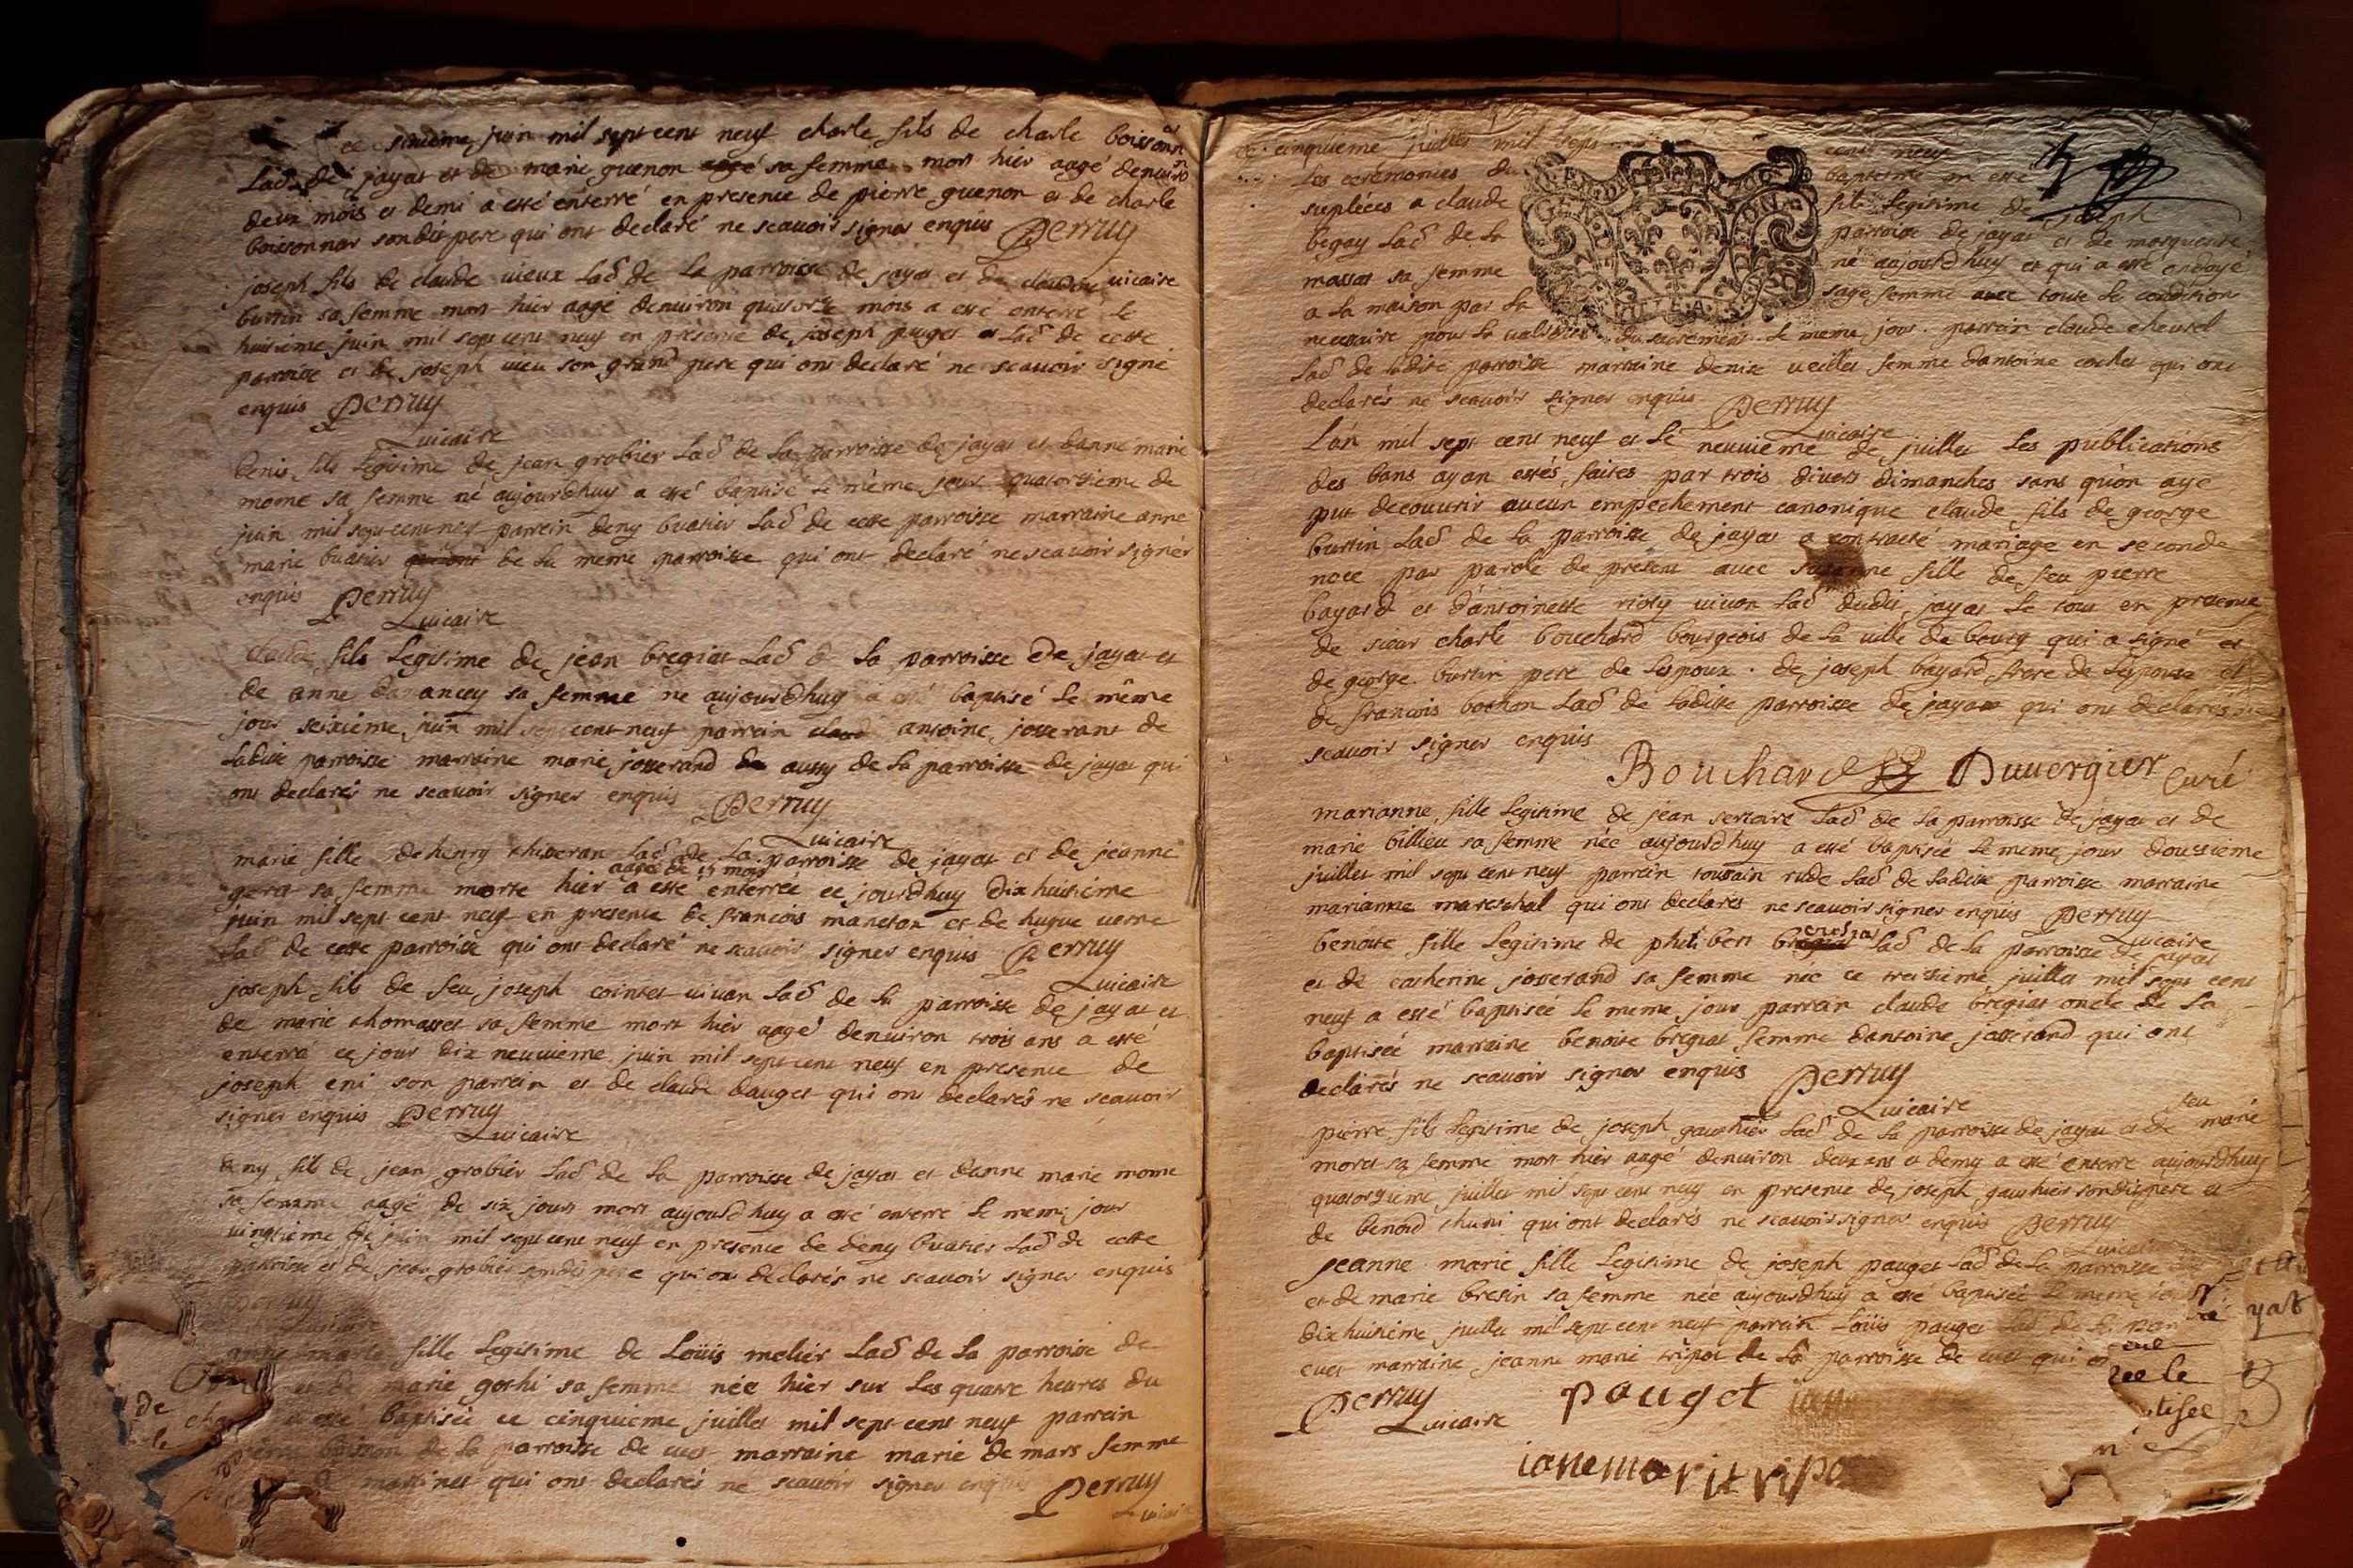 ce sixieme juin mil sept cent neuf charle fils de charle boissonn
Lad. de jayat et de marie guenon sa femme mort hier aagé denuiron
deux mois et demi a esté enterré en presence de pierre guenon et de charle
boissonnar sondit pere qui ont declaré ne scauoir signer enquis Perruy
uicaire
joseph fils de claude uieux Lad. de La parroisse de jayat et de claudine
burtin sa femme mort hier aagé denuiron quatorze mois a esté enterré le
huitieme juin mil sept cent neuf en presence de joseph pauget Lad. de cette
parroisse et de joseph uieu son grand pere qui ont declaré ne scauoir signé
enquis Perruy
uicaire
denis fils Legitime de jean grobier Lad. de La parroisse de jayat et danne marie
mome sa femme né aujourdhuy a esté baptisé le même jour quatorzieme de
juin mil sept cent neuf parrein deny buatier Lad. de cette parroisse marraine anne
marie buatier de la meme parroisse qui ont declaré ne scauoir signér
enquis Perruy
uicaire
claude fils Legitime de jean bregiat Lad. d La parroisse de jayat et
de anne sa femme ne aujourdhuy a esté baptisé le même
jour seixieme juin mil sept cent neuf parrein antoine josserant de
Ladite parroisse marraine marie josserand aussy de La parroisse de jayat qui
ont declarés ne scauoir signer enquis Perruy
uicaire
marie fille de henry Lad. de La parroisse de jayat et de jeanne
aagée de 15 mois
sa femme morte hier a esté enterrée ce jourdhuy dix huitieme
juin mil sept cent neuf en presence de francois maneron et de hugue uerne
Lad. de cette parroisse qui ont declaré ne scauoir signer enquis Perruy
uicaire
joseph fils de feu joseph cointet uiuan Lad. de La parroisse de jayat et
de marie thomasset sa femme mort hier aagé denuiron trois ans a esté
enterré ce jour dix neuuieme juin mil sept cent neuf en presence de
joseph eni son parrein et de claude dauget qui ont declarés ne scauoir
signer enquis Perruy
uicaire
deny fils de jean grobier Lad. de La parroisse de jayat et danne marie mome
sa femme aagé de six jours mort aujourdhuy a esté enterré le meme jour
uingtieme de juin mil sept cent neuf en presence de deny buatier Lad. de cette
parroisse et de jean grobier sondit pere qui ont declarés ne scauoir signer enquis
Perruy
uicaire
anne marie fille Legitime de Loüis melier Lad. de La parroisse de
et de marie gothi sa femme née hier sur Les quatre heures du
a esté baptisée ce cinquieme juillet mil sept cent neuf parrein
de La parroisse de cuet marraine marie de mars femme
qui ont declarés ne scauoir signer enquis Perruy
uicaire
ce cinquieme juillet mil sept cent neuf
Les ceremonies du baptesme on esté
supléées a claude fils legitime de joseph
begay Lad. de La parroisse de jayat et de marguerite
massot sa femme né aujourdhuy et qui a esté ondoyé
a La maison par La sage femme auec toute Les conditions
necessaire pour La ualidité du sacrement Le meme jour parrein claude
Lad. de Ladite parroisse marraine denise ueillet femme dantoine cochet qui ont
declarés ne scauoir signer enquis Perruy
uicaire
L'an mil sept cent neuf et Le neuuieme de juillet Les publications
des bans ayan estés faites par trois diuers dimanches sans qu'on aye
put decouurir aucun empechement canonique claude fils de george
burtin Lad. de La parroisse de jayat a contracté mariage en seconde
noce par parole de present auec susanne fille de feu pierre
bayard et d'antoinette uiuan Lad. dudit jayat Le tout en presence
de sieur charle bouchard bourgeois de La uille de bourg qui a signé et
de george burtin pere de L'epoux de joseph bayard frere de L'epouse et
de francois bochon Lad. de Ladite parroisse de jayat qui ont declarés ne
scauoir signer enquis
Bouchard Duuergier Curé
marianne fille Legitime de jean sertoire Lad. de La parroisse de jayat et de
marie billieu sa femme née aujourdhuy a esté baptisée Le meme jour douzieme
juillet mil sept cent neuf parrein toussain rude Lad. de Ladite parroisse marraine
marianne mareschal qui ont declarés ne scauoir signer enquis Perruy
uicaire
benoite fille Legitime de philibert Lad. de La parroisse de jayat
et de catherine josserand sa femme née ce treizieme juillet mil sept cent
neuf a esté baptisée Le meme jour parrein claude bregiat oncle de La
baptisée marraine benoite bregiat femme dantoine josserand qui ont
declarés ne scauoir signer enquis Perruy
uicaire
pierre fils Legitime de joseph gauthier Lad. de La parroisse de jayat et de feu marie
moret sa femme mort hier aagé denuiron deux ans et demy a esté enterré aujourdhuy
quatorzieme juillet mil sept cent neuf en presence de joseph gauthier sondit pere et
de benoid qui ont declarés ne scauoir signer enquis Perruy
uicaire
jeanne marie fille Legitime de joseph pauget Lad. de La parroisse
et de marie bresin sa femme née aujourdhuy a esté baptisée Le meme jour
dix huitieme juillet mil sept cent neuf parrein Loüis pauget Lad. de La
cuet marraine jeanne marie tripot de La parroisse de cuet qui
Perruy pouget
uicaire
iane mari tripo